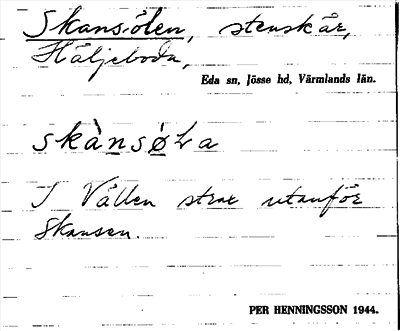 Skansölen, stenskär,
Häljeboda,
Eda sn, Jösse hd, Värmlands län.
skànsø̀La
I Vållen strax utanför
Skansen.
PER HENNINGSSON 1944.